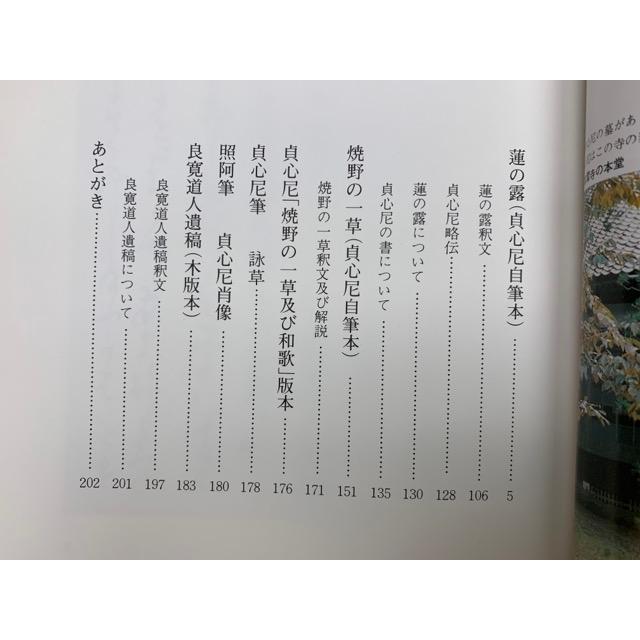 蓮の露(貞心尼自筆本)……………5
蓮の露釈文……………106
貞心尼略伝……………128
蓮の露について……………130
貞心尼の書について……………135
焼野の一草(貞心尼自筆本)……………151
焼野の一草釈文及び解説……………171
貞心尼「焼野の一草及び和歌」版本……………176
貞心尼筆　詠草……………178
照阿筆　貞心尼肖像……………180
良寛道人遺稿(木版本)……………183
良寛道人遺稿釈文……………197
良寛道人遺稿について……………201
あとがき……………202
の墓があ
はこの寺の
寺の本堂